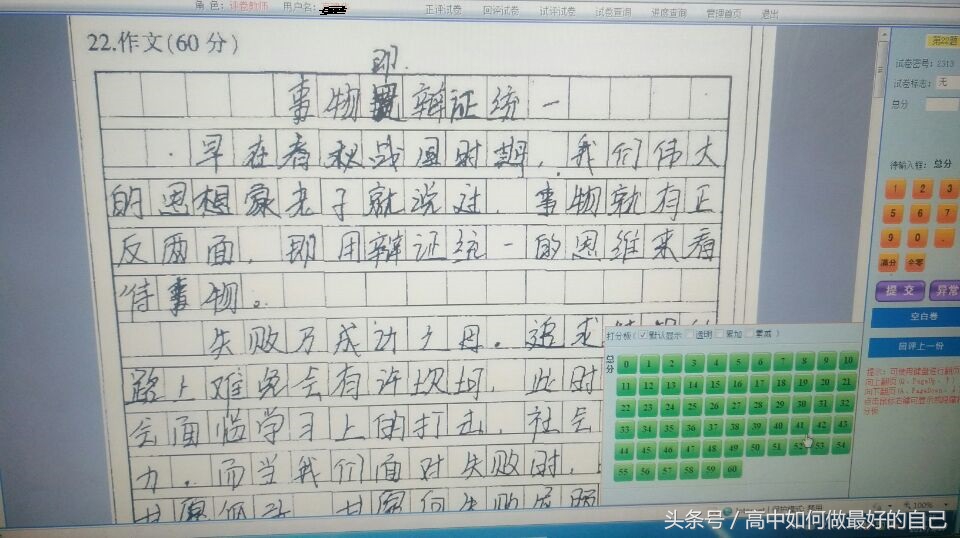 角 色：评卷教师 用户名：
正评试卷 回评试卷 试评试卷 试卷查询 进度查询 管理首页 退出
22.作文(60分)
即
事物辩证统一
早在春秋战国时期，我们伟大
的思想家老子就说过，事物就有正
反两面，即用辩证统一的思维来看
待事物。
失败乃成功之母。追求
路上难免会有许坎坷，此时
会面临学习上的打击，社会
力。而当我们面对失败时，
第22题
试卷密号：2313
试卷标志：无
总分
待输入框：总分
1 2 3
5 6 7
9 0 .
满分 全零
提交 异常
空白卷
回评上一份
打分板( 默认显示 透明 累加 累减 )
总分
0 1 2 3 4 5 6 7 8 9 10
11 12 13 14 15 16 17 18 19 20 21
22 23 24 25 26 27 28 29 30 31 32
33 34 35 36 37 38 39 40 41 42 43
44 45 46 47 48 49 50 51 52 53 54
55 56 57 58 59 60
提示：可使用键盘进行翻页
100%
头条号 / 高中如何做最好的自己